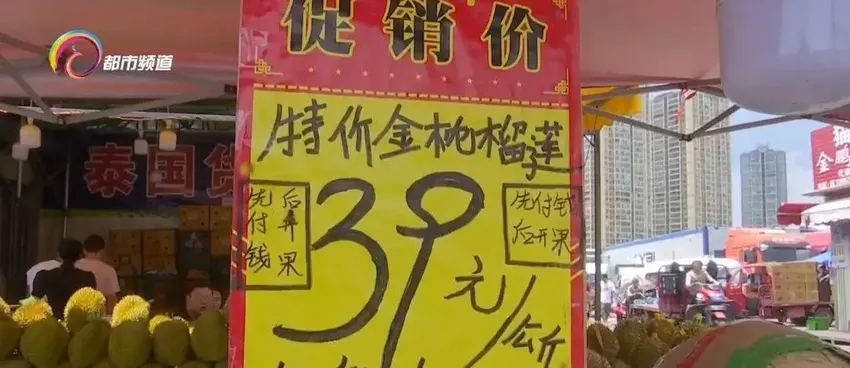 都市频道
促销价
特价金枕榴莲
39元/公斤
先付钱
后弄果
先付钱
后开果
泰国货
猫
金鹏